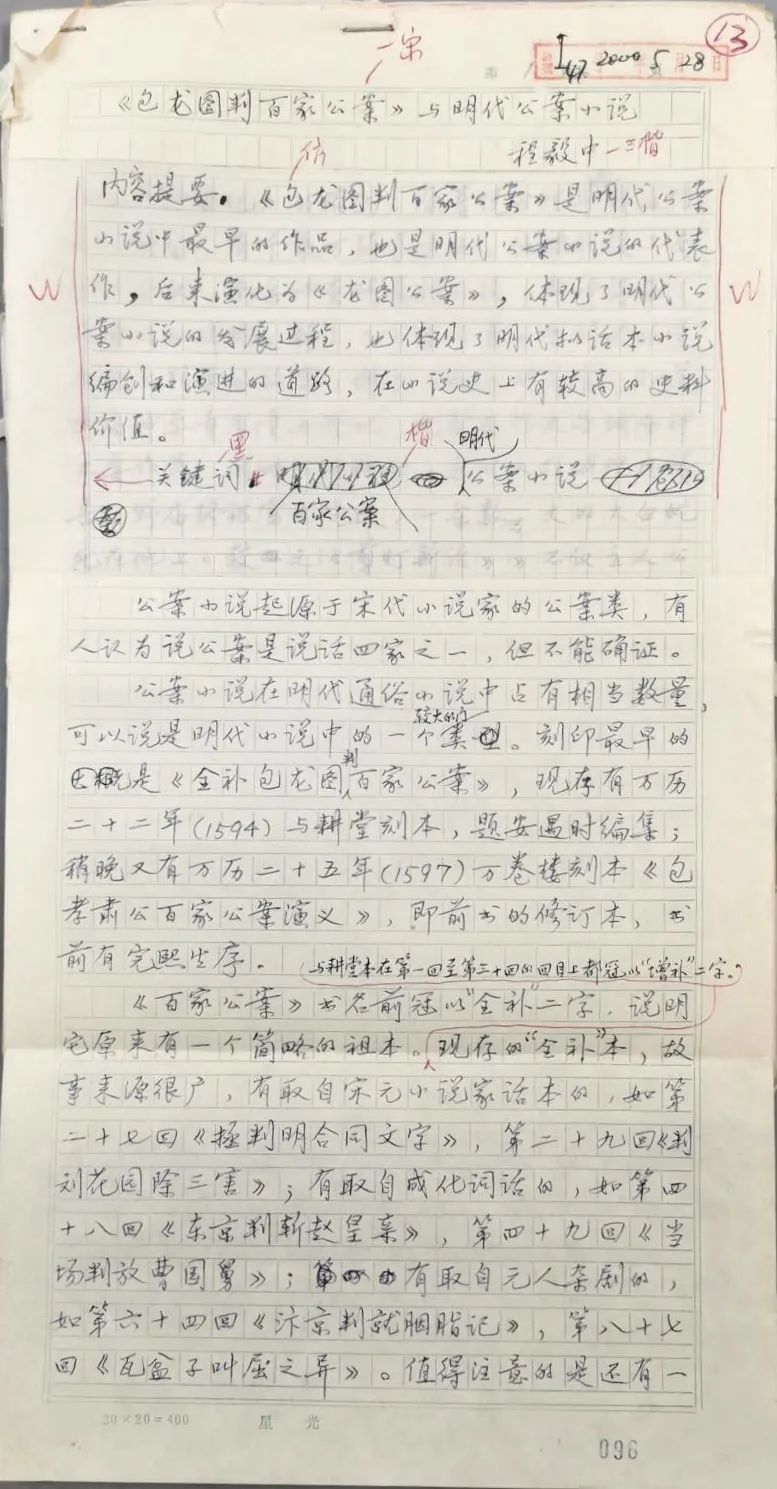 13
47 2000 5 28日
一宋
《包龙图判百家公案》与明代公案小说
程毅中 三楷
仿
内容提要。《包龙图判百家公案》是明代公案
小说中最早的作品，也是明代公案小说的代表
作，后来演化为《龙图公案》，体现了明代公
案小说的发展过程，也体现了明代拟话本小说
编创和演进的道路，在小说史上有较高的史料
价值。
黑 楷 明代
关键词 公案小说
百家公案
公案小说起源于宋代小说家的公案类，有
人认为说公案是说话四家之一，但不能确证。
公案小说在明代通俗小说中占有相当数量，
较大的门
可以说是明代小说中的一个类。刻印最早的
判
是《全补包龙图百家公案》，现存有万历
二十二年(1594)与耕堂刻本，题安遇时编集；
稍晚又有万历二十五年(1597)万卷楼刻本《包
孝肃公百家公案演义》，即前书的修订本，书
前有完熙生序。
与耕堂本在第一回至第三十四回的回目上都冠以“增补”二字。
《百家公案》书名前冠以“全补”二字，说明
它原来有一个简略的祖本。现存的“全补”本，故
事来源很广，有取自宋元小说家话本的，如第
二十七回《拯判明合同文字》，第二十九回《判
刘花园除三害》；有取自成化词话的，如第四
十八回《东京判斩赵皇亲》，第四十九回《当
场判放曹国舅》；有取自元人杂剧的，
如第六十四回《汴京判就胭脂记》，第八十七
回《瓦盆子叫屈之异》。值得注意的是还有一
20×20=400 星光
096